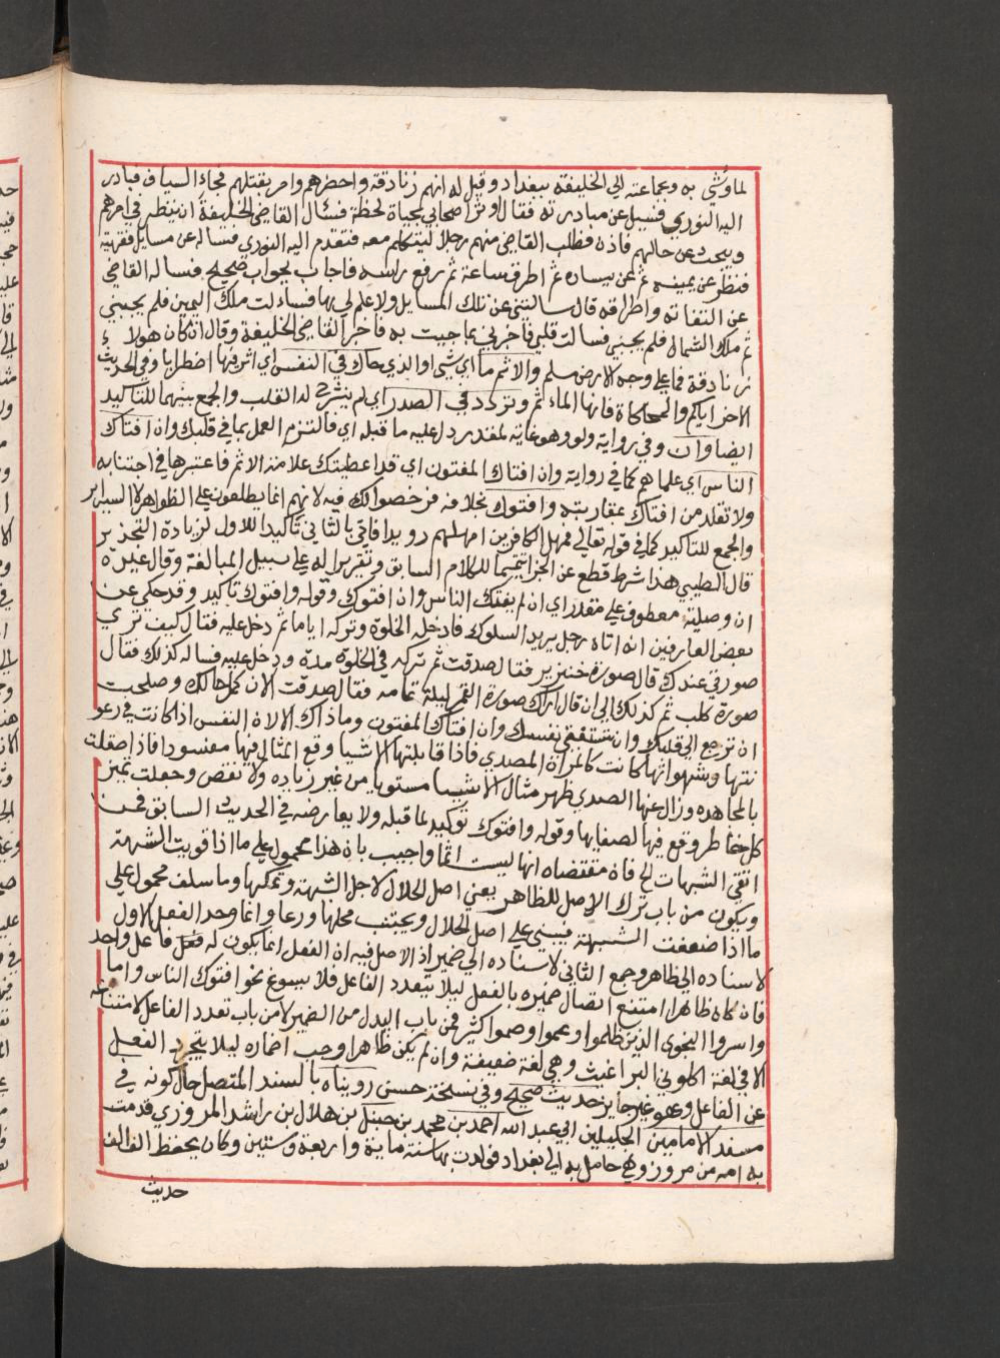 لما وُشى به وبجماعته الى الخليفة ببغداد وقيل له انهم زنادقة واحضرهم وامر بقتلهم فجاء السياف فبادر
اليه النوري فسيل عن مبادرته فقال اوثر اصحابي بحياة لحظة فسال القاضي الخليفة ان ينظر في امرهم
ويبحث عن حالهم فاذن فطلب القاضي منهم رجلا ليتكلم معه فتقدم اليه النوري فساله عن مسايل فقهية
فنظر عن يمينه ثم عن يساره ثم اطرق ساعة ثم رفع راسه فاجاب بجواب صحيح فساله القاضي
عن التفاته واطراقه قال سالتني عن تلك المسايل ولا علم لي بها فسالت ملك اليمين فلم يجبني
ثم ملك الشمال فلم يجبني فسالت قلبي فاخبرني بما اجيبت به فاخبر القاضي الخليفة وقال ان كان هولاء
زنادقة فما على وجه الارض مسلم والاثم ما اي شي او الذي حاك في النفس اي اثر فيها اضطرابا وفي الحديث
الاخر اياكم والمحاكاة فانها الماثم وتردد في الصدر اي لم ينشرح له القلب والجمع بينهما للتاكيد
ايضا وان وفي رواية ولو وهو غاية لمقدر دل عليه ما قبله اي فالتزم العمل بما في قلبك وان افتاك
الناس اي علماهم كما في رواية وان افتاك المفتون اي قد اعطيتك علامة الاثم فاعتبرها في اجتنابه
ولا تقلد من افتاك بمقاربته وافتوك بخلافه فرخصوا لك فيه لانهم انما يطلعون على الظواهر لا السراير
والجمع للتاكيد كما في قوله تعالى فمهل الكافرين امهلهم رويدا فاتى بالثاني تاكيدا للاول لزيادة التحذير
قال الطيبي هذا شرط قطع عن الجزا تتميما للكلام السابق وتقريرا له على سبيل المبالغة وقال غيره
ان وصلية معطوف على مقدر اي ان لم يفتك الناس وان افتوك وقوله وافتوك تاكيد وقد حكي عن
بعض العارفين انه اتاه رجل يريد السلوك فادخله الخلوة وتركه اياما ثم دخل عليه فقال كيف ترى
صورتي عندك قال صورة خنزير فقال صدقت ثم تركه في الخلوة مدة ودخل عليه فساله كذلك فقال
صورة كلب ثم كذلك الى ان قال اراك صورة القمر ليلة تمامه فقال صدقت الان كمل حالك وصلحت
ان ترجع الى قلبك وان تستفتي نفسك وان افتاك المفتون وما ذاك الا لان النفس اذا كانت في رعو
نتها وشهواتها كانت كالمراة المصدي فاذا قابلتها الاشيا وقع المثال فيها مفسودا فاذا صقلت
بالمجاهده وزال عنها الصدي ظهر مثال الاشيا مستويا من غير زياده ولا نقص وجعلت تميز
كل خاطر وقع فيها لصفايها وقوله وافتوك توكيد لما قبله ولا يعارضه في الحديث السابق فمن
اتقى الشبهات الخ فان مقتضاه انها ليست اثما واجيب بان هذا محمول على ما اذا قويت الشبهة
ويكون من باب ترك الاصل للظاهر يعني اصل الحلال لاجل الشبهة وتمكنها وما سلف محمول على
ما اذا ضعفت الشبهة فيبني على اصل الحلال ويجتنب محلها ورعا وانما وحد الفعل الاول
لاسناده الى ظاهر وجمع الثاني لاسناده الى ضمير اذ الاصل فيه ان الفعل انما يكون له فعل فاعل واحد
فان كان ظاهرا امتنع اتصال ضميره بالفعل ليلا يتعدد الفاعل فلا يسوغ نحو افتوك الناس واما
واسروا النجوى الذين ظلموا وعموا وصموا كثير فمن باب البدل من الضمير لا من باب تعدد الفاعل لامتناعه
الا في لغة اكلوني البراغيث وهي لغة ضعيفة وان لم يكن ظاهرا وجب اضماره ليلا يتجرد الفعل
عن الفاعل وهو غير جايز حديث صحيح وفي نسخة حسن رويناه بالسند المتصل حال كونه في
مسند الامامين الجليلين ابي عبد الله احمد بن محمد بن حنبل بن هلال بن راشد المروزي قدمت
به امه من مرو وهي حامل به الى بغداد فولدت بها سنة ماية واربعة وستين وكان يحفظ الف الف
حديث